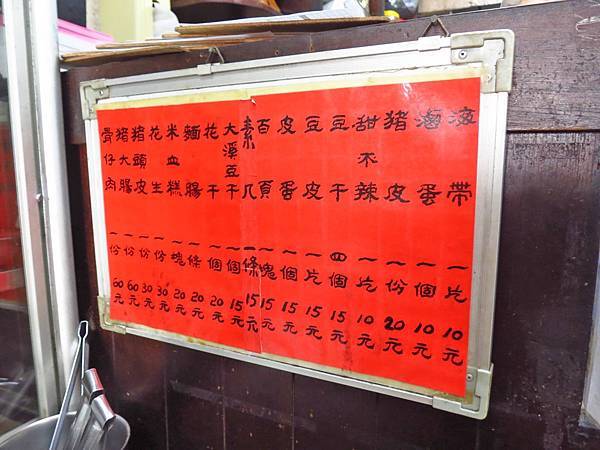 滷帶一片10元
滷蛋一個10元
猪皮一份20元
甜不辣一片10元
豆干四個15元
豆皮一片15元
皮蛋一個15元
百頁一塊15元
素几一條15元
大溪豆干一個15元
花干一個20元
麵腸一條20元
米血糕一塊20元
花生一份30元
猪頭皮一份30元
猪大腸一份60元
骨仔肉一份60元